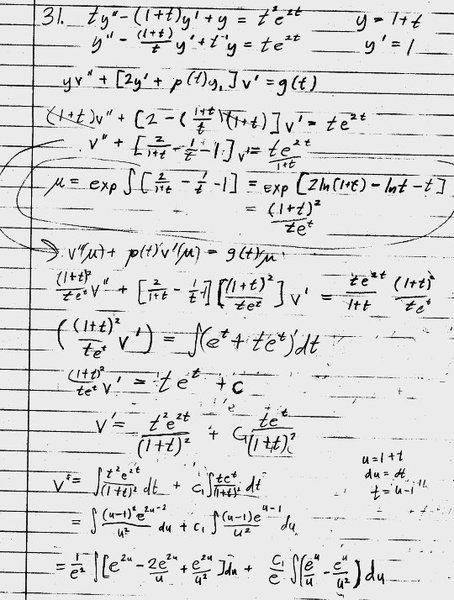 31. ty'' - (1+t)y' + y = t²e^{2t} y = 1+t
y'' - (1+t)/t y' + t⁻¹y = te^{2t} y' = 1
yv'' + [2y' + p(t)y,]v' = g(t)
(1+t)v'' + [2 - ((1+t)/t)(1+t)]v' = te^{2t}
v'' + [2/(1+t) - 1/t - 1]v' = te^{2t}/(1+t)
μ = exp ∫[2/(1+t) - 1/t - 1] = exp[2ln(1+t) - lnt - t]
= (1+t)²/(te^t)
→ v''(μ) + p(t)v'(μ) = g(t)μ
(1+t)²/(te^t) v'' + [2/(1+t) - 1/t - 1][(1+t)²/(te^t)]v' = te^{2t}/(1+t) (1+t)²/(te^t)
((1+t)²/(te^t) v') = ∫(e^t + te^t)dt
(1+t)²/(te^t) v' = te^t + c
v' = t²e^{2t}/(1+t)² + C₁ te^t/(1+t)²
u = 1+t
du = dt
t = u-1
v = ∫ t²e^{2t}/(1+t)² dt + c₁∫ te^t/(1+t)² dt
= ∫ (u-1)²e^{2u-2}/u² du + c₁ ∫ (u-1)e^{u-1}/u² du
= 1/e² ∫[e^{2u} - 2e^{2u}/u + e^{2u}/u²]du + c₁/e ∫(e^u/u - e^u/u²)du